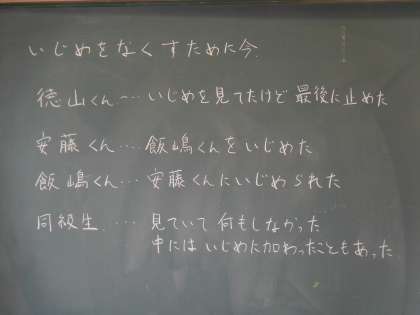 いじめをなくすために今
徳山くん…いじめを見てたけど最後に止めた
安藤くん…飯嶋くんをいじめた
飯嶋くん…安藤くんにいじめられた
同級生…見ていて何もしなかった
中にはいじめに加わったこともあった